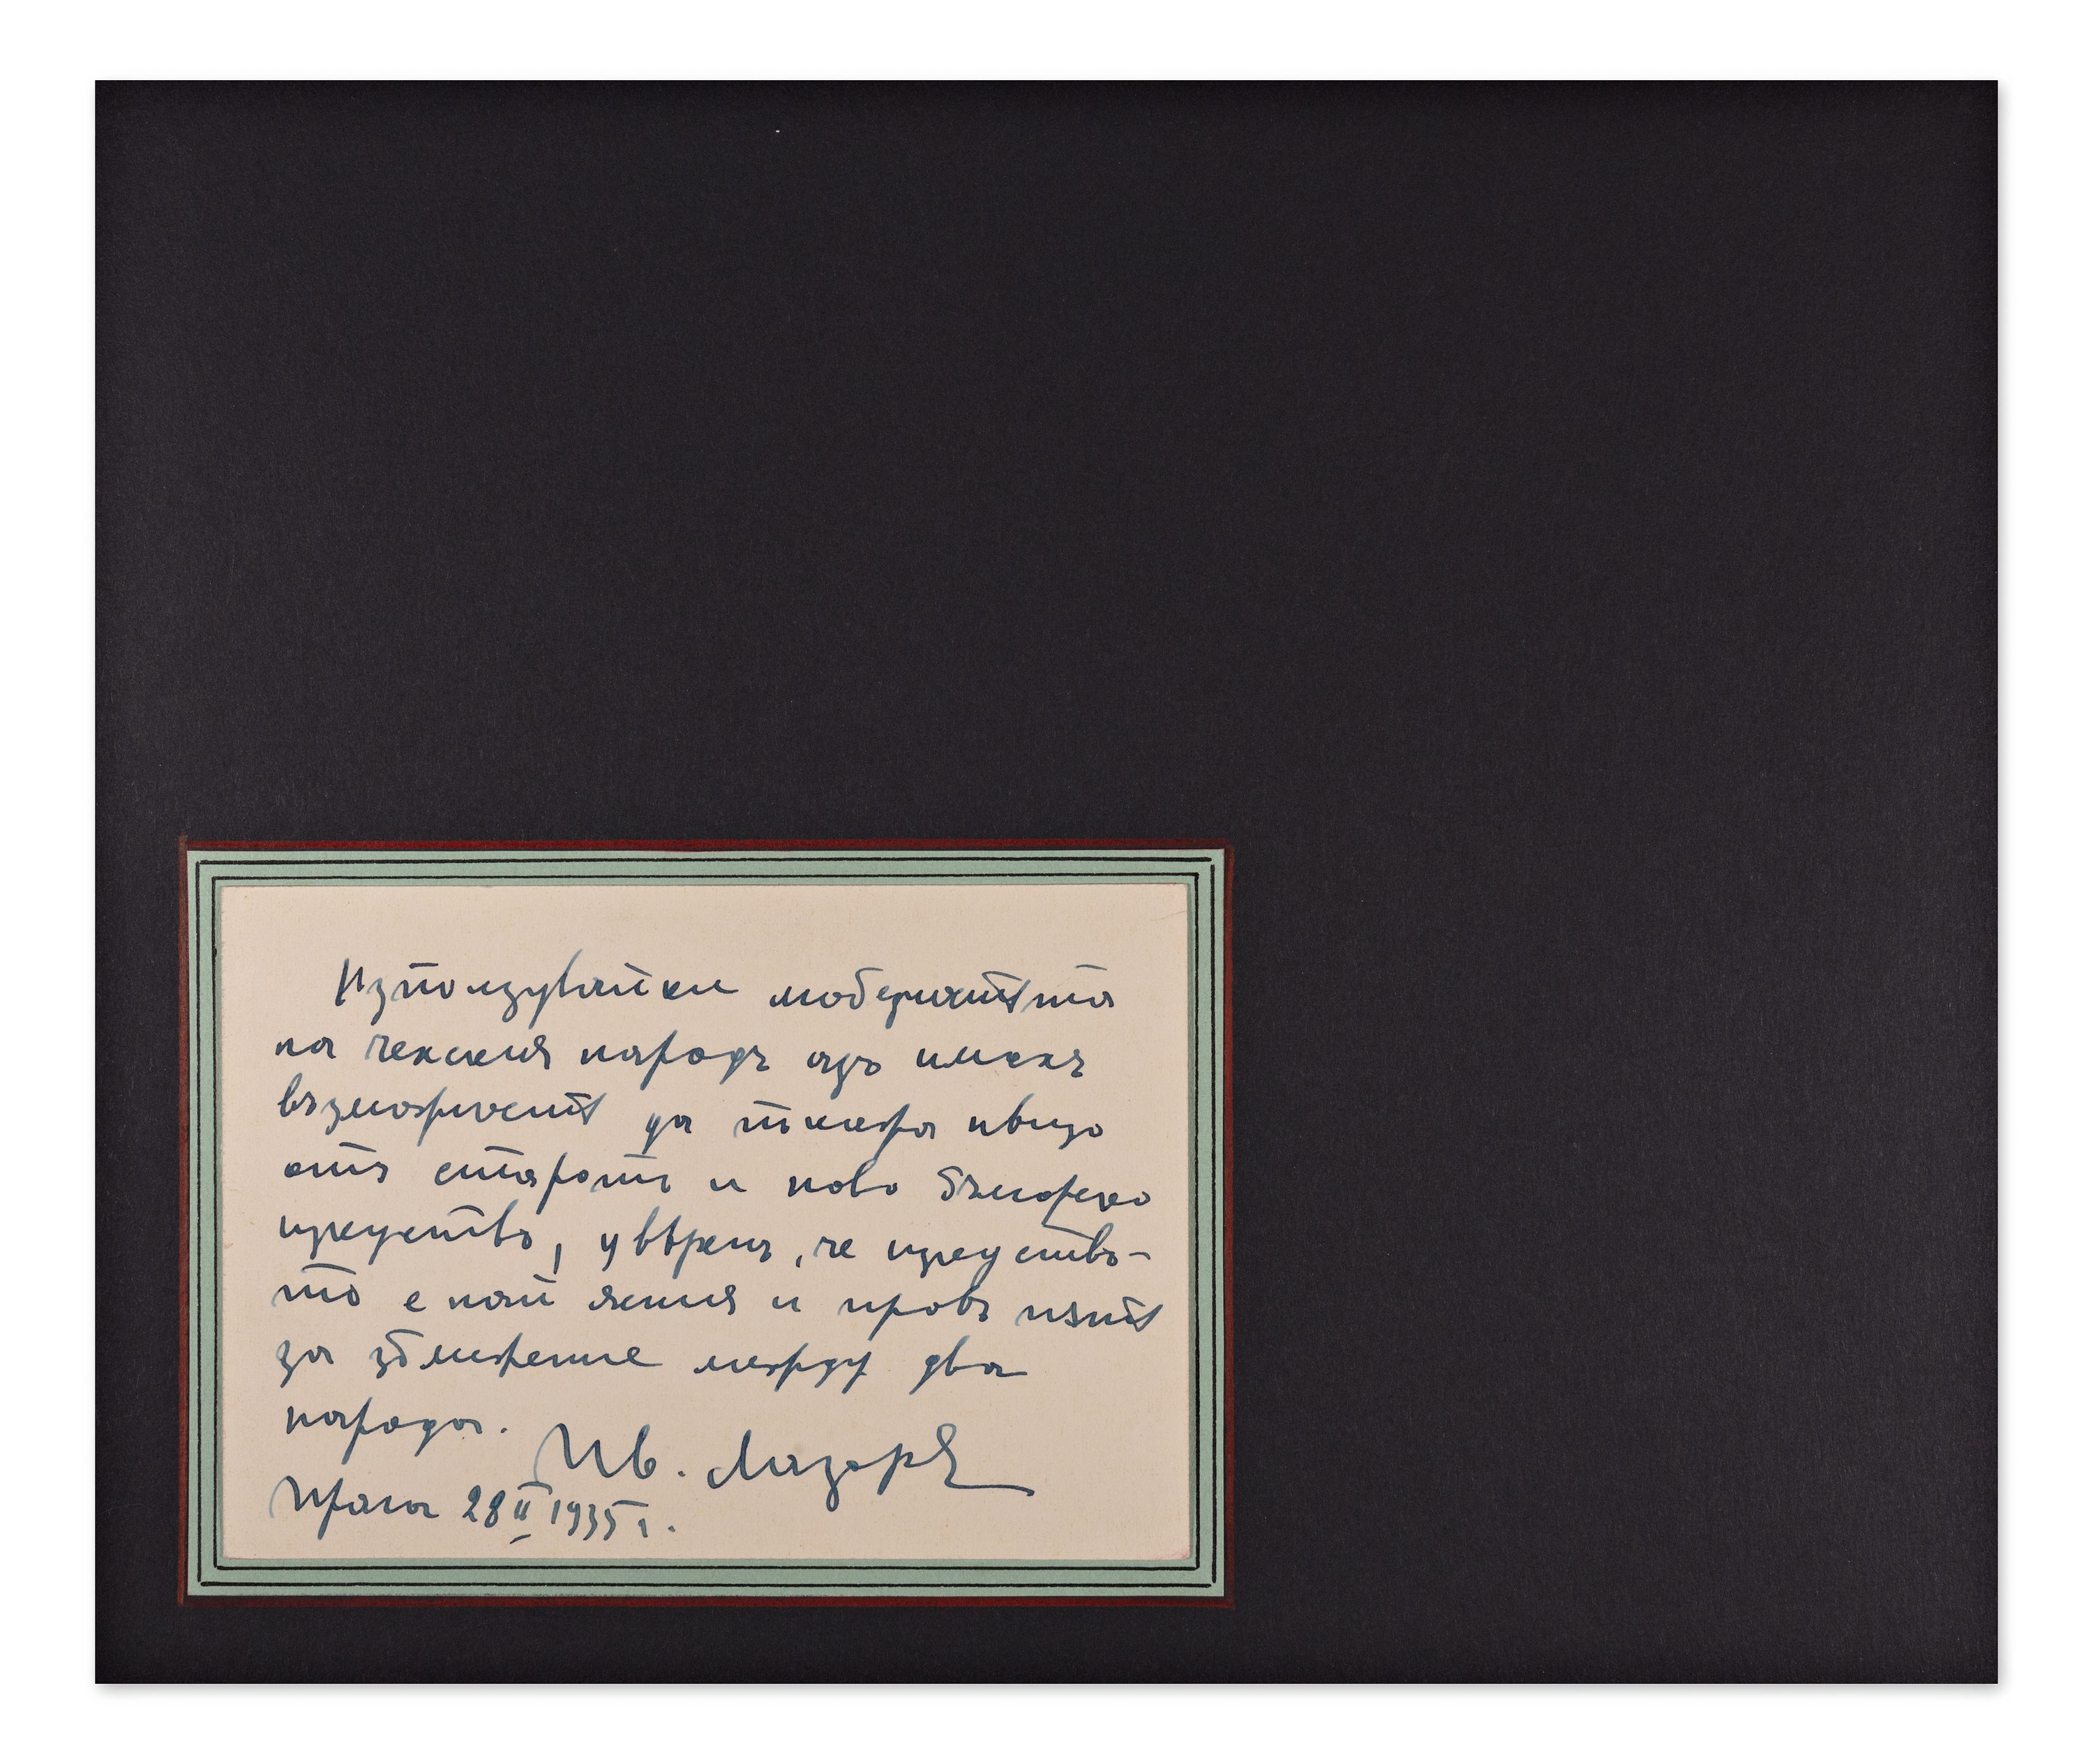 Използувайки
на чехския народъ азъ имахъ
възможностьта да
отъ старото и ново българско
изкуство, увѣренъ, че изкуство-
то е най ясния и правъ пѫть
за сближение между два
народа.
Ив. Лазаровъ
Прага 28 II 1935 г.